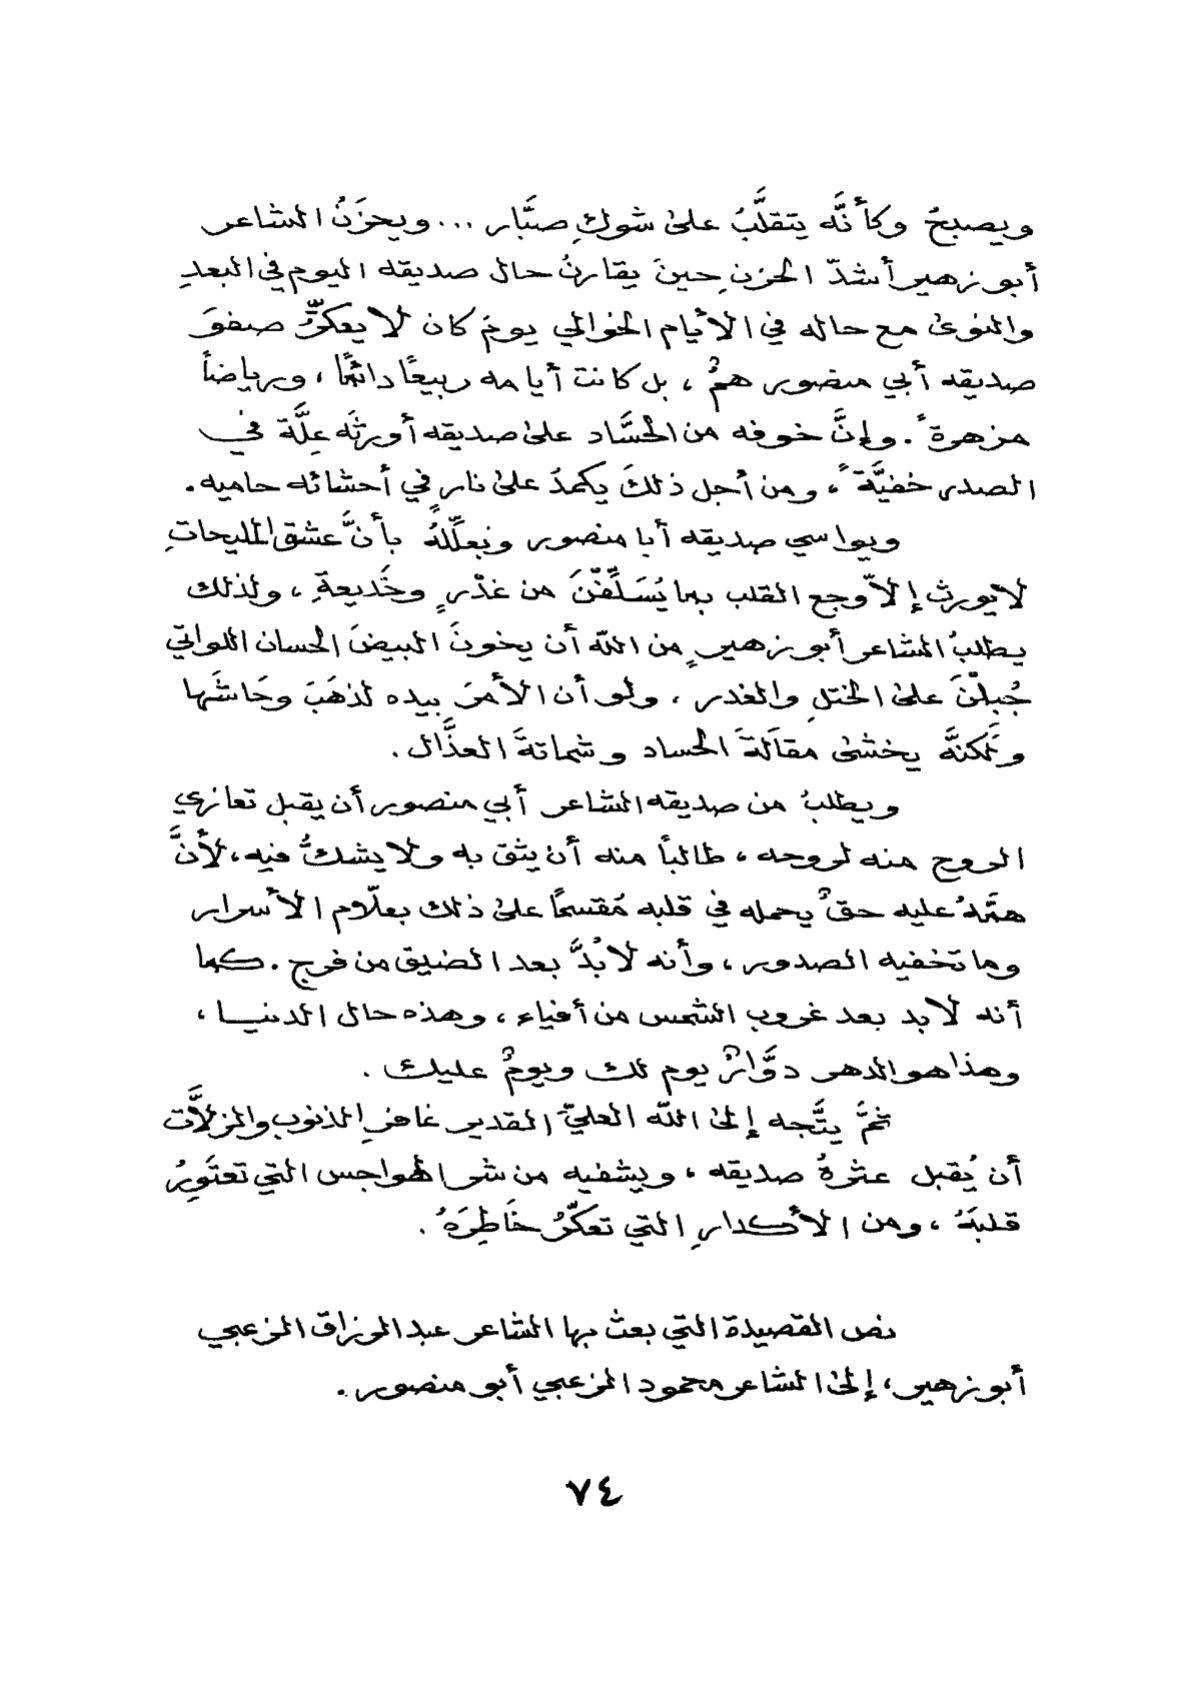 ويصبحُ وكأنَّه يتقلَّبُ على شوكِ صبَّار ... ويحزَنُ الشاعر
أبو زهير أشدّ الحزنِ حينَ يقارنُ حال صديقه اليوم في البعدِ
والنوى مع حاله في الأيام الخوالي يومَ كان لا يعكِّرُ صفوَ
صديقه أبي منصور همٌّ ، بل كانت أيامه ربيعًا دائمًا ، ورياضاً
مزهرةً . وإنَّ خوفه من الحسَّاد على صديقه أورثَه عِلَّة في
الصدر خفيَّةً ، ومن أجل ذلكَ يكمدُ على نارٍ في أحشائه حاميه .
ويواسي صديقه أبا منصور ويعلِّلهُ بأنَّ عشق المليحاتِ
لايورث إلاّ وجع القلب بما يُسَلِّفْنَ من غدْرٍ وخَديعةِ ، ولذلك
يطلبُ الشاعر أبو زهيرٍ من اللّه أن يخونَ البيضَ الحسان اللواتي
جُبِلْنَ على الختلِ والغدر ، ولو أن الأمرَ بيده لذهَبَ وحَاشَها
ولكنهَّ يخشى مقالَةَ الحساد وشماتةَ العذَّال .
ويطلبُ من صديقه الشاعر أبي منصور أن يقبل تعازي
الروح منه لروحه ، طالباً منه أن يثق به ولا يشكُّ فيه ، لأنَّ
همَّهُ عليه حقٌ يحمله في قلبه مُقسمًا على ذلك بعلّام الأسرار
وما تخفيه الصدور ، وأنه لابُدَّ بعد الضيق من فرج . كما
أنه لابد بعد غروب الشمس من أفياء ، وهذه حال الدنيا ،
وهذا هو الدهر دوَّارٌ يوم لك ويومٌ عليك .
ثمَّ يتَّجه إلى اللّه العليّ القدير غافرِ الذنوب والزلاَّت
أن يُقبل عثرةُ صديقه ، ويشفيه من شر الهواجس التي تعتَوِرُ
قلبَهُ ، ومن الأكدارِ التي تعكّرُ خَاطِرَهُ .
نص القصيدة التي بعث بها الشاعر عبد الرزاق الزعبي
أبو زهير ، إلى الشاعر محمود الزعبي أبو منصور .
٧٤